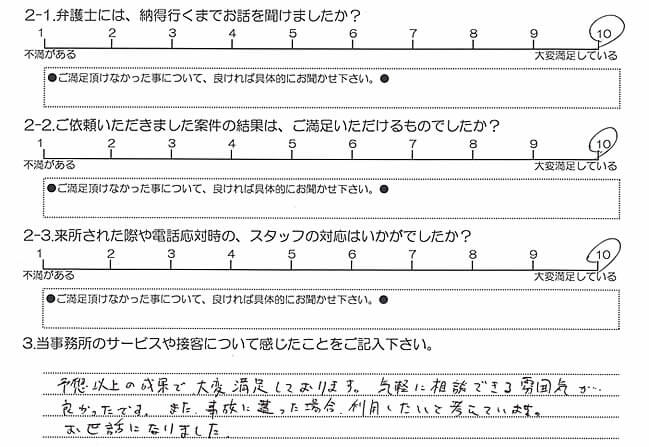 2-1.弁護士には、納得行くまでお話を聞けましたか？
1 2 3 4 5 6 7 8 9 10
不満がある 大変満足している
●ご満足頂けなかった事について、良ければ具体的にお聞かせ下さい。●
2-2.ご依頼いただきました案件の結果は、ご満足いただけるものでしたか？
1 2 3 4 5 6 7 8 9 10
不満がある 大変満足している
●ご満足頂けなかった事について、良ければ具体的にお聞かせ下さい。●
2-3.来所された際や電話応対時の、スタッフの対応はいかがでしたか？
1 2 3 4 5 6 7 8 9 10
不満がある 大変満足している
●ご満足頂けなかった事について、良ければ具体的にお聞かせ下さい。●
3.当事務所のサービスや接客について感じたことをご記入下さい。
予想以上の成果で大変満足しております。気軽に相談できる雰囲気が
良かったです。また、事故に遭った場合、利用したいと考えています。
お世話になりました。